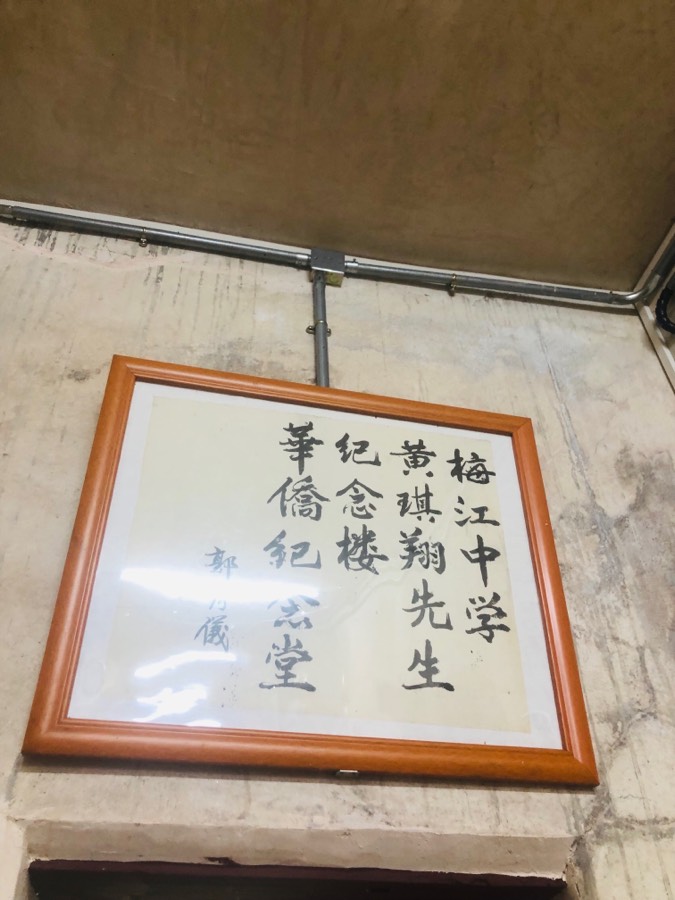 梅江中学
黄琪翔先生
纪念楼
華僑紀念堂
郭秀儀